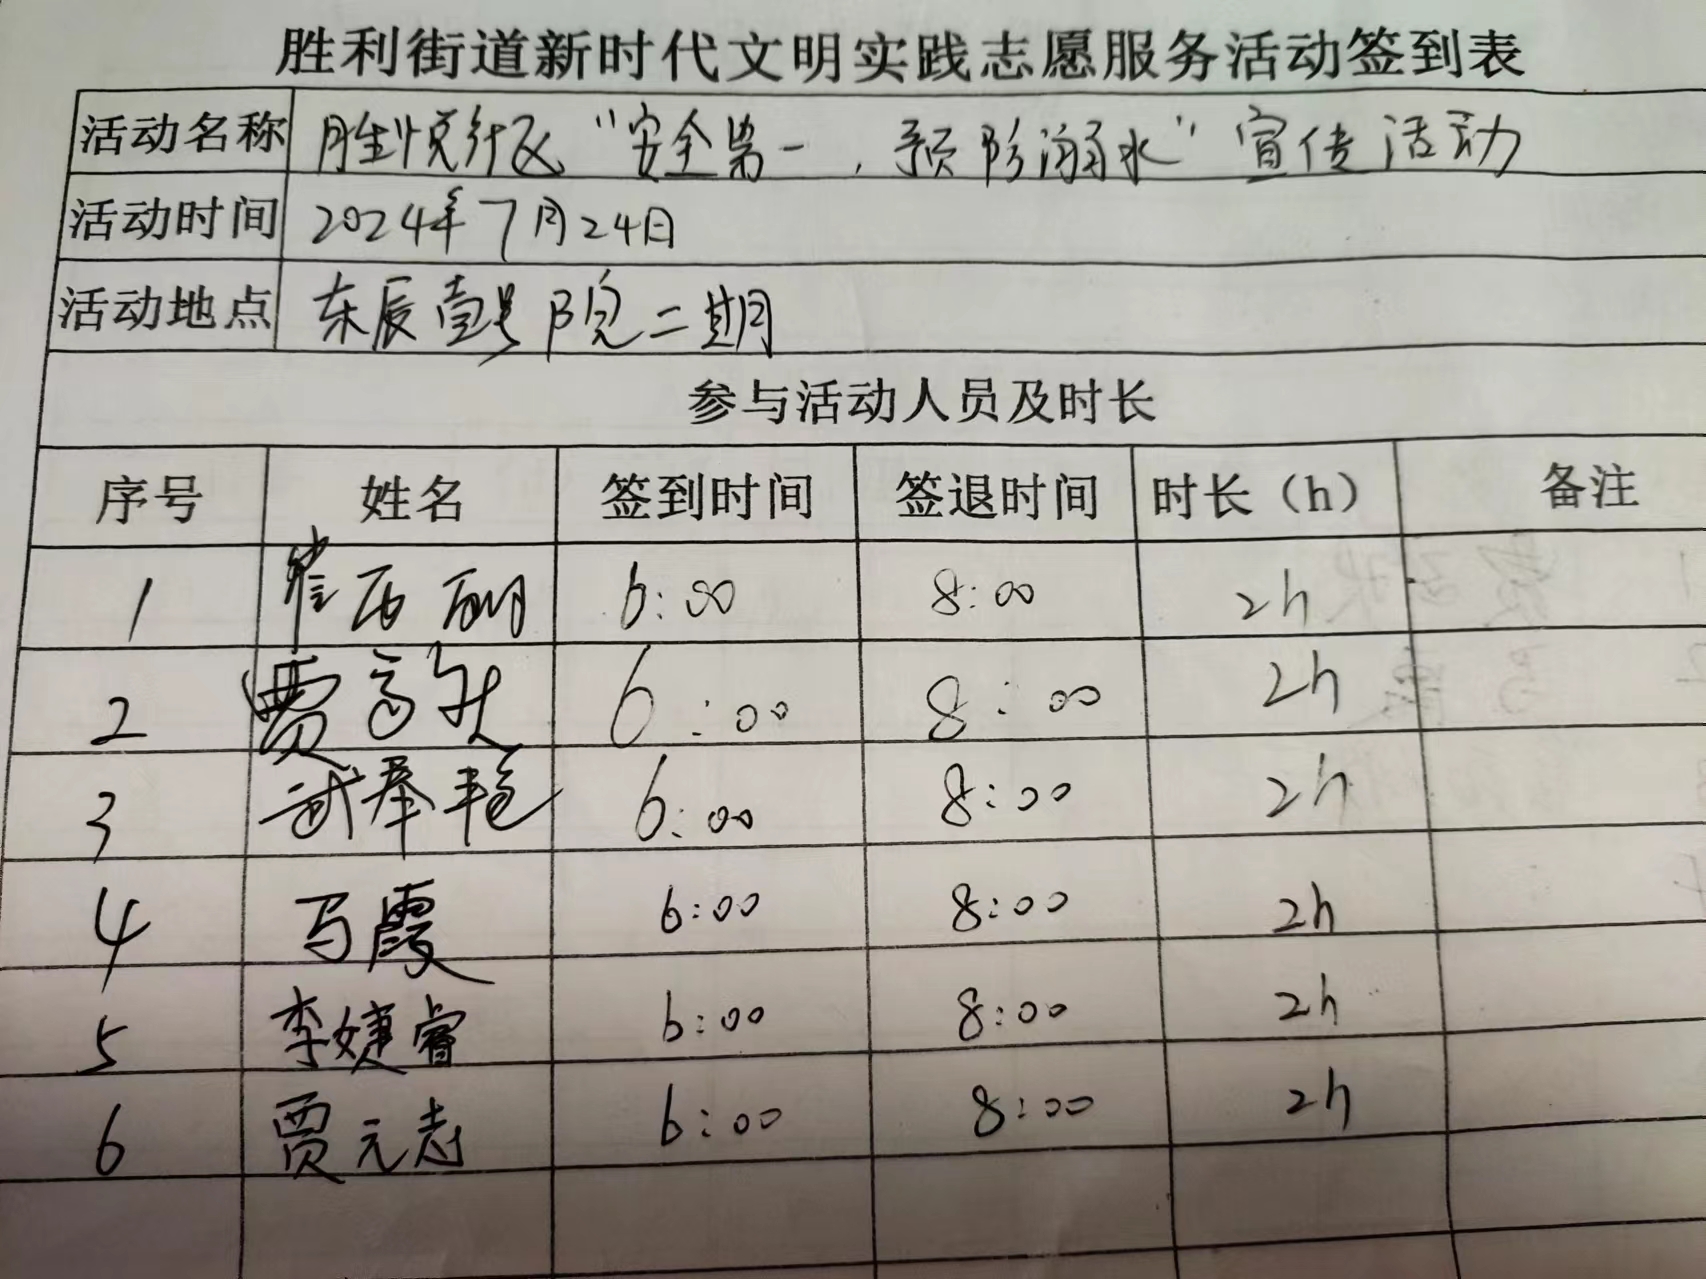 胜利街道新时代文明实践志愿服务活动签到表
活动名称 胜悦社区“安全第一，预防溺水”宣传活动
活动时间 2024年7月24日
活动地点 东辰壹号院二期
参与活动人员及时长
序号 姓名 签到时间 签退时间 时长（h） 备注
1 6:00 8:00 2h
2 贾 6:00 8:00 2h
3 武春艳 6:00 8:00 2h
4 马霞 6:00 8:00 2h
5 李婕睿 6:00 8:00 2h
6 贾元志 6:00 8:00 2h